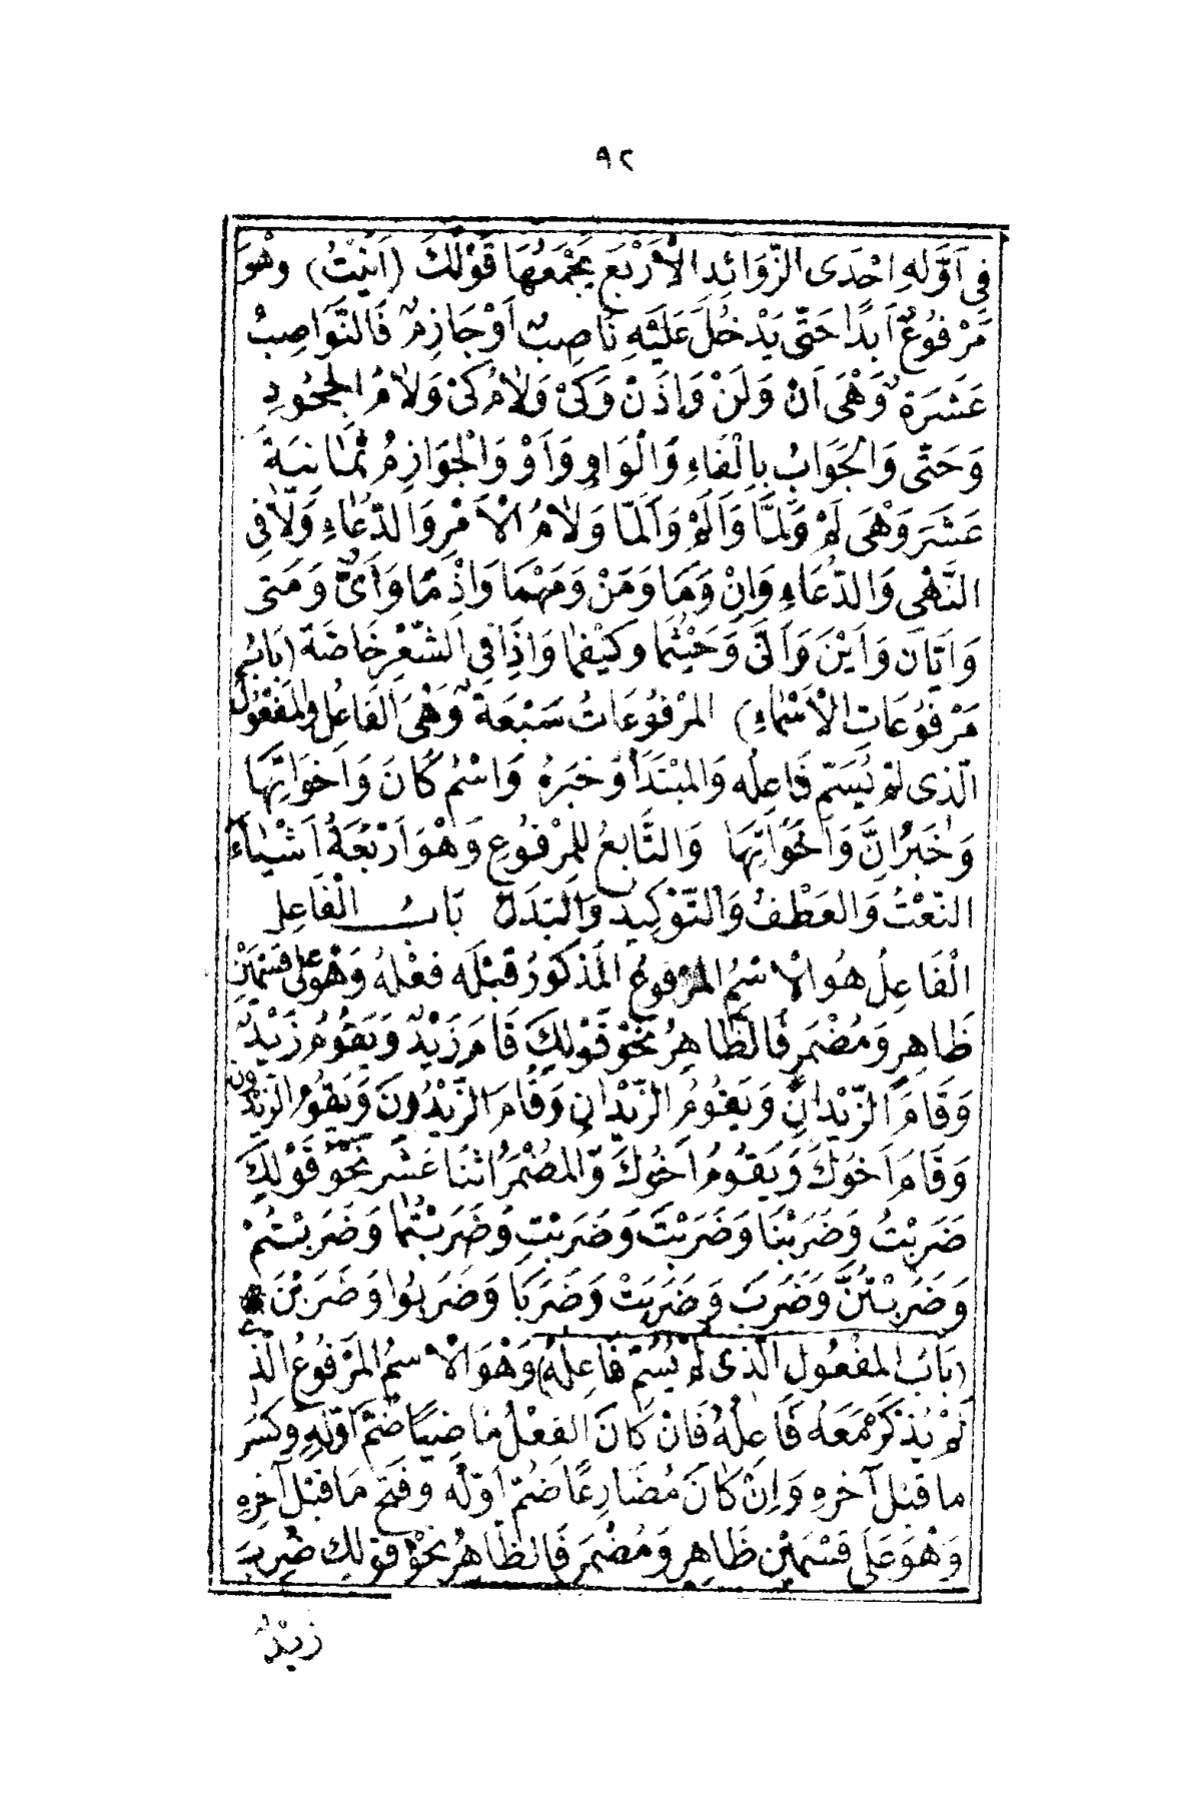 ٩٢
فِى اَوَّلِهِ اِحْدَى الزَّوَائِدِ الْاَرْبَعِ يَجْمَعُهَا قَوْلُكَ (اَنَيْتُ) وَهْوَ
مَرْفُوْعٌ اَبَدًا حَتّٰى يَدْخُلَ عَلَيْهِ نَاصِبٌ اَوْ جَازِمٌ فَالنَّوَاصِبُ
عَشَرَةٌ وَهْىَ اَنْ وَلَنْ وَاِذَنْ وَكَىْ وَلَامُ كَىْ وَلَامُ الْجُحُوْدِ
وَحَتّٰى وَالْجَوَابُ بِالْفَاءِ وَالْوَاوِ وَاَوْ وَالْجَوَازِمُ ثَمَانِيَةَ
عَشَرَ وَهْىَ لَمْ وَلَمَّا وَاَلَمْ وَاَلَمَّا وَلَامُ الْاَمْرِ وَالدُّعَاءِ وَلَا فِى
النَّهْىِ وَالدُّعَاءِ وَاِنْ وَمَا وَمَنْ وَمَهْمَا وَاِذْمَا وَاَىٌّ وَمَتٰى
وَاَيَّانَ وَاَيْنَ وَاَنّٰى وَحَيْثُمَا وَكَيْفَمَا وَاِذَا فِى الشِّعْرِ خَاصَّةً (بَابُ
مَرْفُوْعَاتِ الْاَسْمَاءِ) الْمَرْفُوْعَاتُ سَبْعَةٌ وَهْىَ الْفَاعِلُ وَالْمَفْعُوْلُ
الَّذِى لَمْ يُسَمَّ فَاعِلُهُ وَالْمُبْتَدَأُ وَخَبَرُهُ وَاسْمُ كَانَ وَاَخَوَاتِهَا
وَخَبَرُ اِنَّ وَاَخَوَاتِهَا وَالتَّابِعُ لِلْمَرْفُوْعِ وَهْوَ اَرْبَعَةُ اَشْيَاءَ
النَّعْتُ وَالْعَطْفُ وَالتَّوْكِيْدُ وَالْبَدَلُ بَابُ الْفَاعِلِ
الْفَاعِلُ هُوَ الْاِسْمُ الْمَرْفُوْعُ الْمَذْكُوْرُ قَبْلَهُ فِعْلُهُ وَهْوَ عَلٰى قِسْمَيْنِ
ظَاهِرٍ وَمُضْمَرٍ فَالظَّاهِرُ نَحْوُ قَوْلِكَ قَامَ زَيْدٌ وَيَقُوْمُ زَيْدٌ
وَقَامَ الزَّيْدَانِ وَيَقُوْمُ الزَّيْدَانِ وَقَامَ الزَّيْدُوْنَ وَيَقُوْمُ الزَّيْدُوْنَ
وَقَامَ اَخُوْكَ وَيَقُوْمُ اَخُوْكَ وَالْمُضْمَرُ اثْنَا عَشَرَ نَحْوُ قَوْلِكَ
ضَرَبْتُ وَضَرَبْنَا وَضَرَبْتَ وَضَرَبْتِ وَضَرَبْتُمَا وَضَرَبْتُمْ
وَضَرَبْتُنَّ وَضَرَبَ وَضَرَبَتْ وَضَرَبَا وَضَرَبُوْا وَضَرَبْنَ
(بَابُ الْمَفْعُوْلِ الَّذِى لَمْ يُسَمَّ فَاعِلُهُ) وَهْوَ الْاِسْمُ الْمَرْفُوْعُ الَّذِى
لَمْ يُذْكَرْ مَعَهُ فَاعِلُهُ فَاِنْ كَانَ الْفِعْلُ مَاضِيًا ضُمَّ اَوَّلُهُ وَكُسِرَ
مَا قَبْلَ آخِرِهِ وَاِنْ كَانَ مُضَارِعًا ضُمَّ اَوَّلُهُ وَفُتِحَ مَا قَبْلَ آخِرِهِ
وَهْوَ عَلٰى قِسْمَيْنِ ظَاهِرٍ وَمُضْمَرٍ فَالظَّاهِرُ نَحْوُ قَوْلِكَ ضُرِبَ
زَيْدٌ